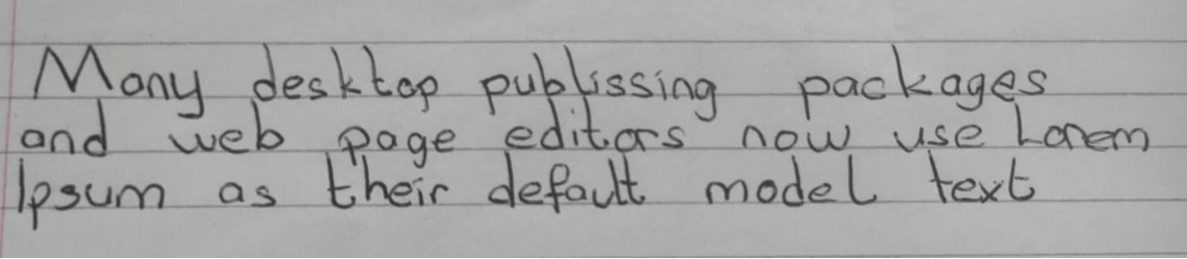 Many desktop publissing packages
and web page editors now use Lorem
Ipsum as their default model text